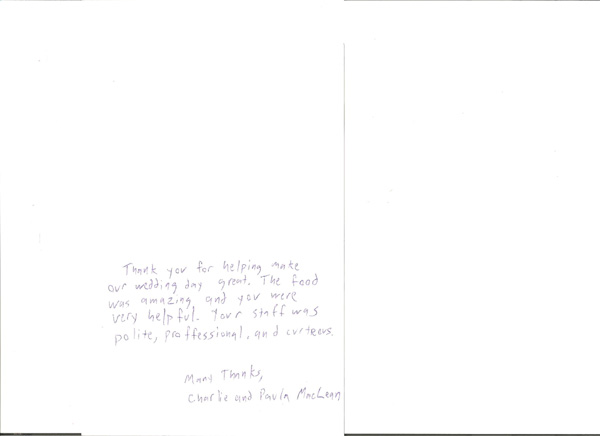 Thank you for helping make
our wedding day great. The food
was amazing and you were
very helpful. Your staff was
polite, proffessional, and curteous.
Many Thanks,
Charlie and Paula MacLean